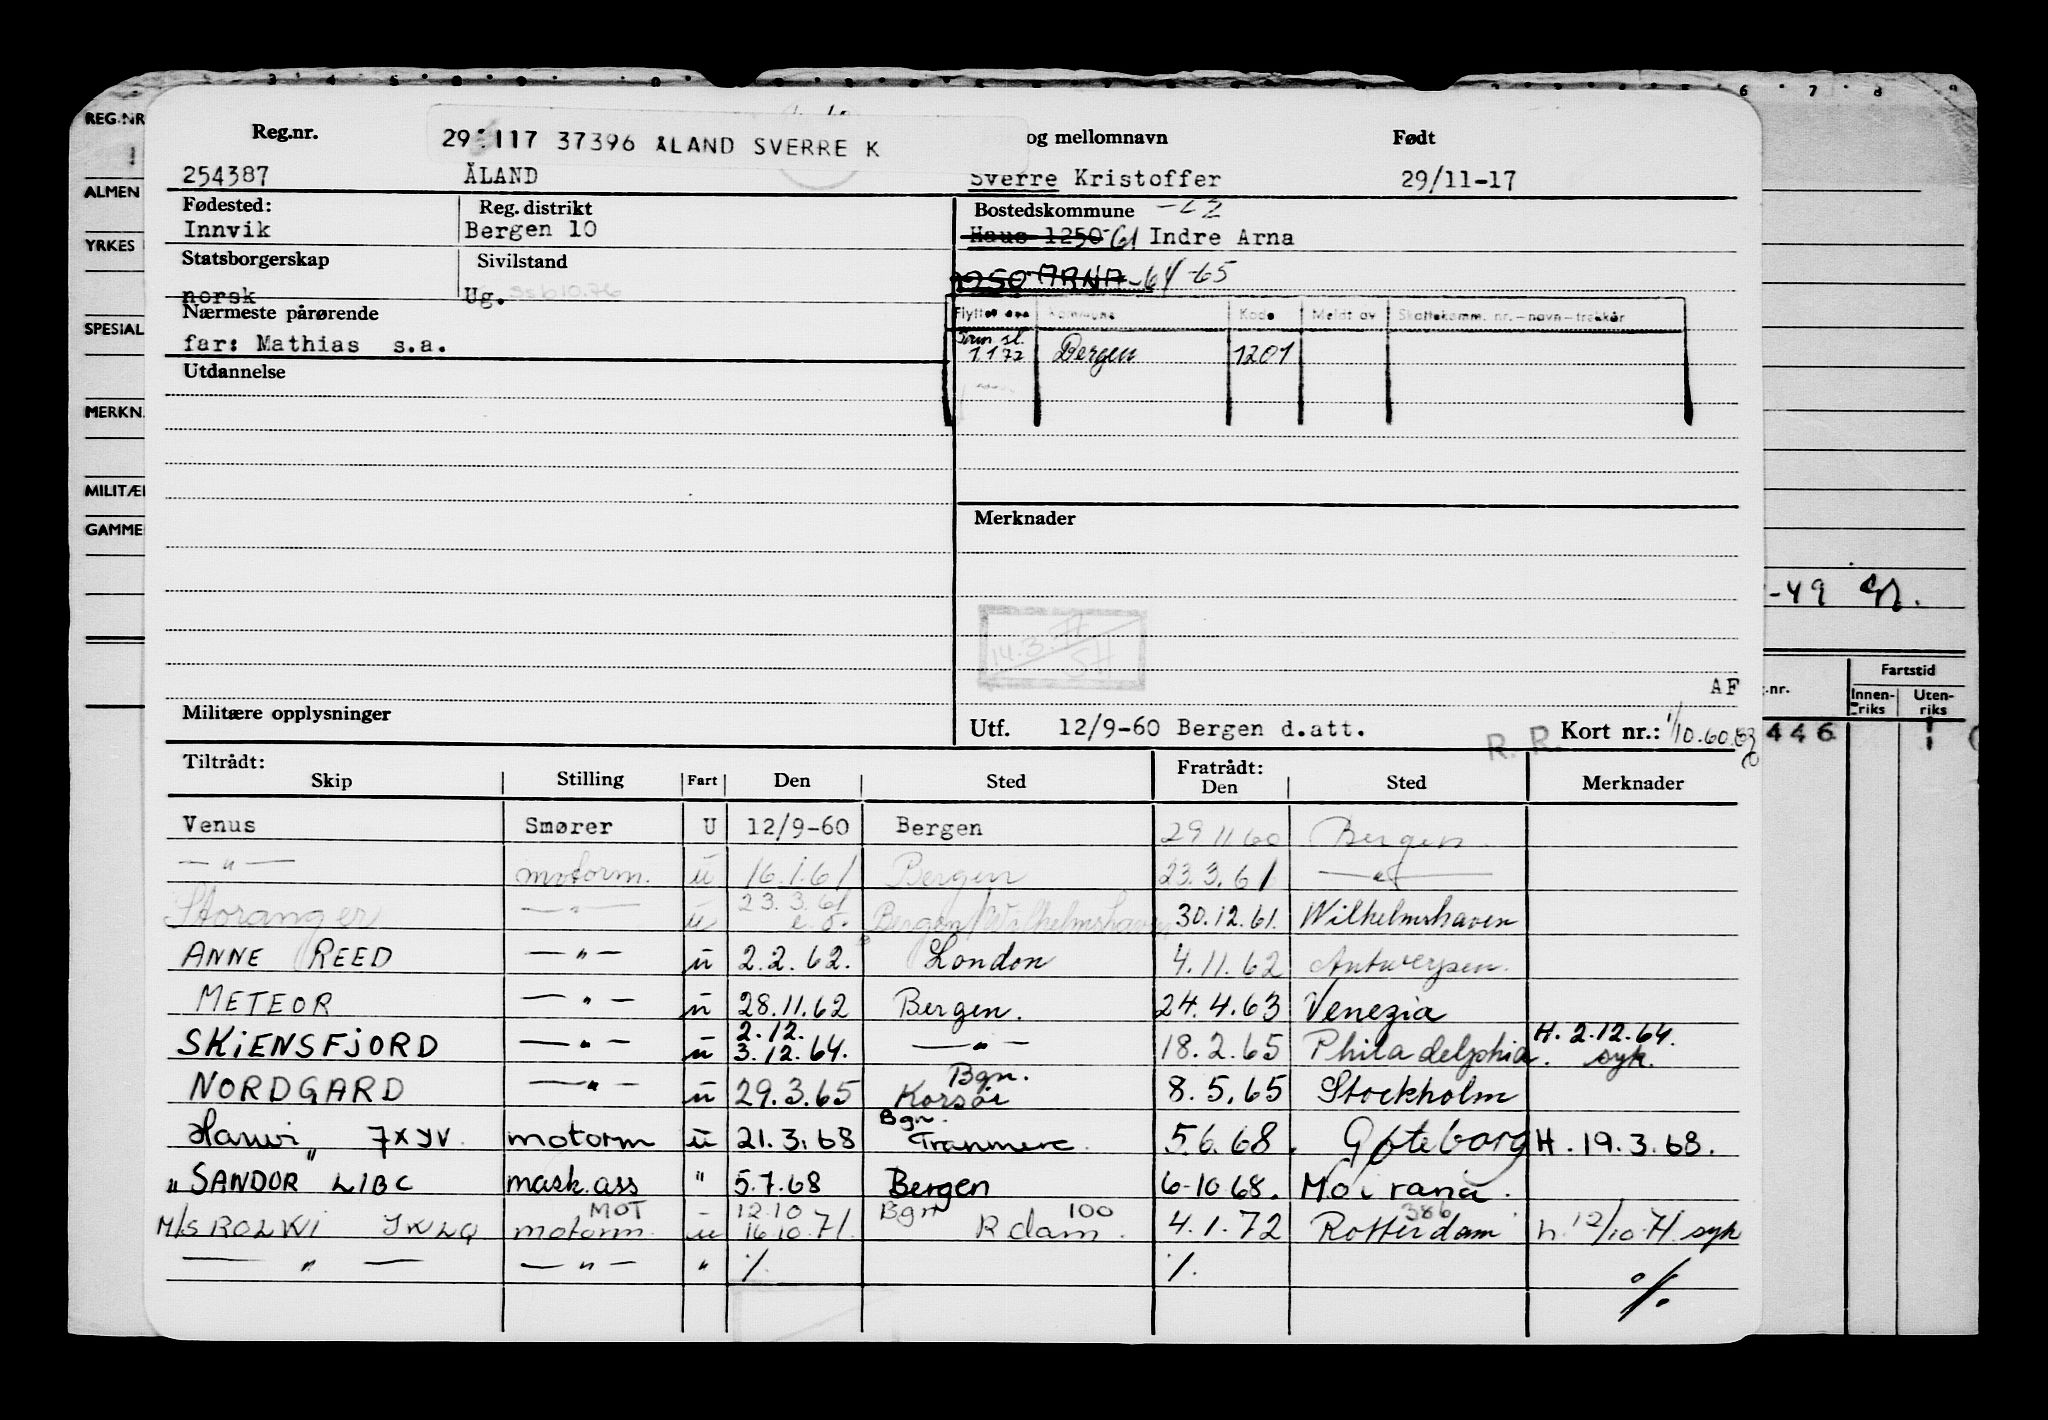 REG.NR
Reg.nr. 29 1117 37396 ÅLAND SVERRE K og mellomnavn Født
254387 ÅLAND Sverre Kristoffer 29/11-17
ALMEN
Fødested: Reg. distrikt Bostedskommune
Innvik Bergen 10 Haus 1250 61 Indre Arna
YRKES
Statsborgerskap Sivilstand
ARNA - 64 -65
norsk Ug.
Nærmeste pårørende
Kommune Kode Meldt av Skattekomm. nr. - navn - trekkår
SPESIAL
far: Mathias s.a.
1 1 72 Bergen 1201
Utdannelse
MERKN.
MILITÆR
Merknader
GAMME
-49
14.3.
Fartstid
AF
.nr. Innen-riks Uten-riks
Militære opplysninger
Utf. 12/9-60 Bergen d.att. R. R. Kort nr.: 1/10.60
446
Tiltrådt: Fratrådt:
Skip Stilling Fart Den Sted Den Sted Merknader
Venus Smører U 12/9-60 Bergen 29 11 60 Bergen.
— " — motorm. u 16.1.61 Bergen 23.3.61 — " —
Storanger — " — u 23.3.61 Bergen/Wilhelmshaven 30.12.61. Wilhelmshaven
ANNE REED — " — u 2.2.62. London 4.11.62 Antwerpen.
METEOR — " — u 28.11.62 Bergen. 24.4.63 Venezia
2.12. H. 2.12.64.
SKIENSFJORD — " — u 3.12.64. — " — 18.2.65 Philadelphia. syk.
Bgn.
NORDGARD — " — u 29.3.65 Korsør 8.5.65 Stockholm
Bgn.
7XYV. motorm u 21.3.68 Tranmere. 5.6.68. Gøteborg H. 19.3.68.
"SANDOR LIBC mask.ass " 5.7.68 Bergen 6-10 68. Mo i rana.
MOT 12.10 Bgn 100 386
M/S ROLKI JKLQ motorm. u 16.10.71. R dam. 4.1.72 Rotterdam h. 12/10.71. syk
— " — — " — " %. %.
%.